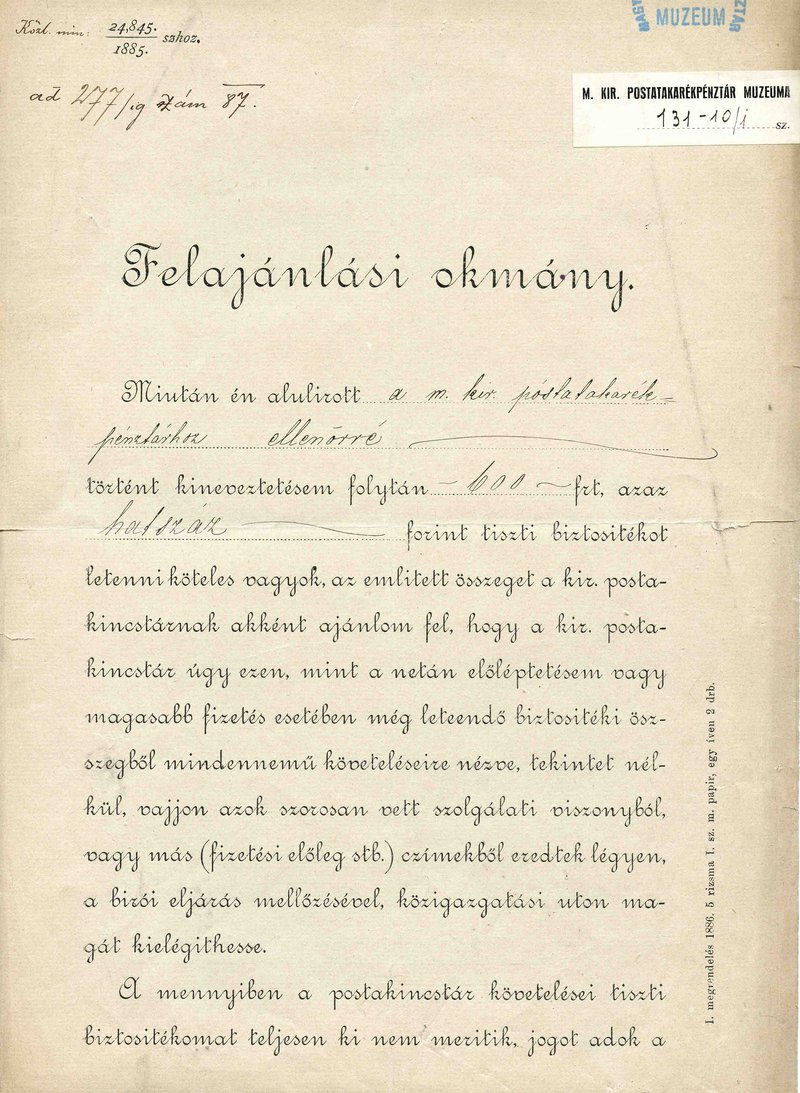 Közl. min: 24,845./1885. szhoz.
MUZEUM
ad 277/ig szám 87.
M. KIR. POSTATAKARÉKPÉNZTÁR MUZEUMA
131-10/i sz.
Felajánlási okmány.
Miután én alulirott a m. kir. póstatakarék=
pénztárhoz ellenőrré
történt kineveztetésem folytán – 600 – frt, azaz
hatszáz forint tiszti biztositékot
letenni köteles vagyok, az emlitett összeget a kir. posta-
kincstárnak akként ajánlom fel, hogy a kir. posta-
kincstár úgy ezen, mint a netán előléptetésem vagy
magasabb fizetés esetében még leteendő biztositéki ösz-
szegből mindennemű követeléseire nézve, tekintet nél-
kül, vajjon azok szorosan vett szolgálati viszonyból,
vagy más (fizetési előleg stb.) czímekből eredtek légyen,
a birói eljárás mellőzésével, közigazgatási uton ma-
gát kielégithesse.
A mennyiben a postakincstár követelései tiszti
biztositékomat teljesen ki nem meritik, jogot adok a
I. megrendelés 1886. 5 rizsma I. sz. m. papír, egy íven 2 drb.